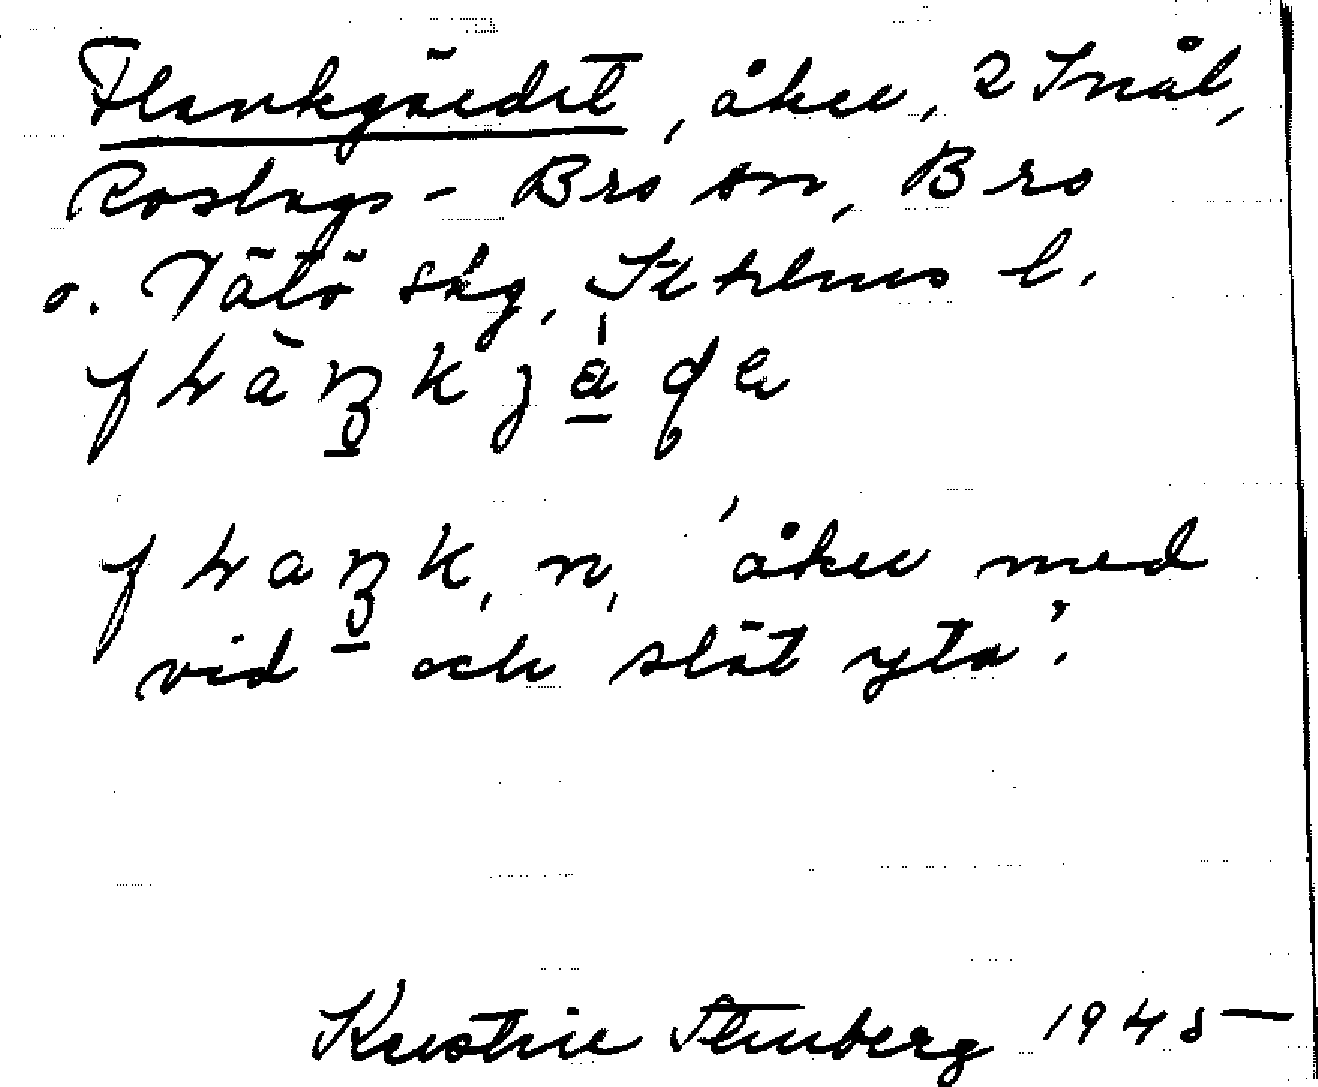 Flankgärdet, åker, 2 Snål,
Roslags-Bro sn, Bro
o. Vätö skg, Sthlms l.
vid och slät yta'.
åker med
Kristin Stenberg 1945